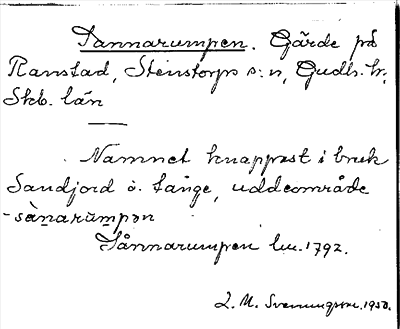 Sannarumpen. Gärde på
Ranstad, Stenstorps s:n, Gudh. hr,
Skb. län
Namnet knappast i bruk
Sandjord o. länge, uddeområde
-sànarùmpən
Sånnarumpen lm. 1792.
L. M. Svenungsson. 1930.